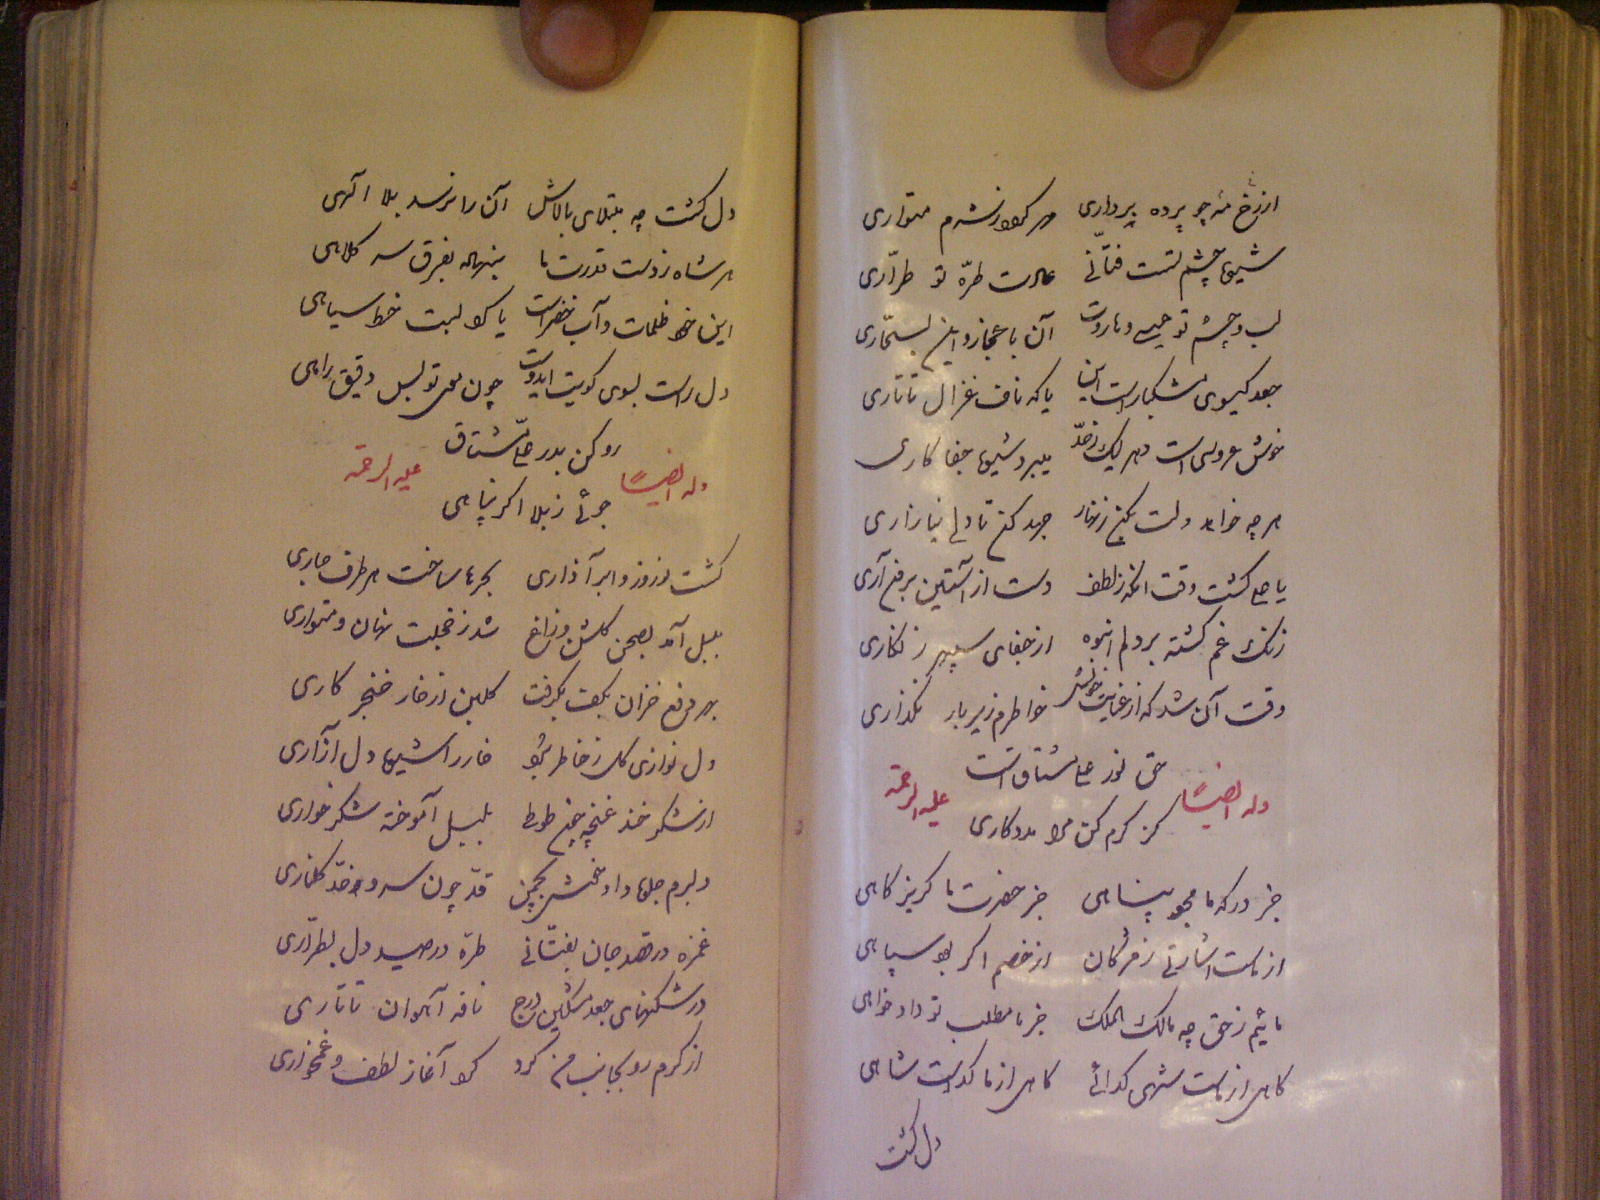 از رخ مه چو پرده برداری مهر گردد ز شرم متواری
شیوهٔ چشم تست فتّانی عادت طرّهٔ تو طرّاری
لب و چشم تو عیسی و ماروت آن باعجاز و این بسحّاری
جعد گیسوی مشکبار است این یا که ناف غزال تاتاری
خوش عروسی است دهر لیک ز خدّ میبرد شیوهٔ جفا کاری
هر چه خواهد دلت بکن زنهار جهد کن تا دلی نیازاری
یا علی گشت وقت آنکه ز لطف دست از آستین برفع آری
زنگ غم گشته بر دلم انبوه از جفای سپهر زنگاری
وقت آن شد که از عنایت خویش خواطرم زیر بار نگذاری
حق نور علی مشتاق است
کز کرم کن مرا مددکاری
وله ایضاً علیه الرحمة
جز درگه ما مجو پناهی جز حضرت ما گریزگاهی
از ماست اشارتی ز مژگان از خصم اگر بود سپاهی
مائیم ز حق چه مالک الملک جز ما مطلب تو دادخواهی
گاهی از ماست شهی گدائی گاهی از ما گداست شاهی
دل گشت
دل گشت چه مبتلای بالاش آن را نرسد بلا آلهی
هر شاه ز دست قدرت ما بنهاد بفرق سر کلاهی
این خط ظلمات و آب خضر است یا گرد لبت خط سیاهی
دل راست بسوی کویت ایدوست چون موی تو بس دقیق راهی
رو کن بدر علی مشتاق
جوئی ز بلا اگر پناهی
وله ایضاً علیه الرحمة
گشت نوروز و ابر آذاری بحرها ساخت هر طرف جاری
بلبل آمد بصحن گلشن و زاغ شد ز خجلت نهان و متواری
بهر دفع خزان بکف بگرفت گلبن از خار خنجر کاری
دل نوازی گل ز خاطر برد خار را شیوهٔ دل آزاری
از شکر خند غنچه چون طوطی بلبل آموخته شکر خواری
دلبرم جلوه داد بچمن قدّ چون سرو و خدّ گلناری
غمزه در قصد جان بفتّانی طرّه در صید دل بطرّاری
در شکنهای جعد مشکین درج نافه آهوان تاتاری
از کرم رو بجانب من کرد کرد آغاز لطف و غمخواری